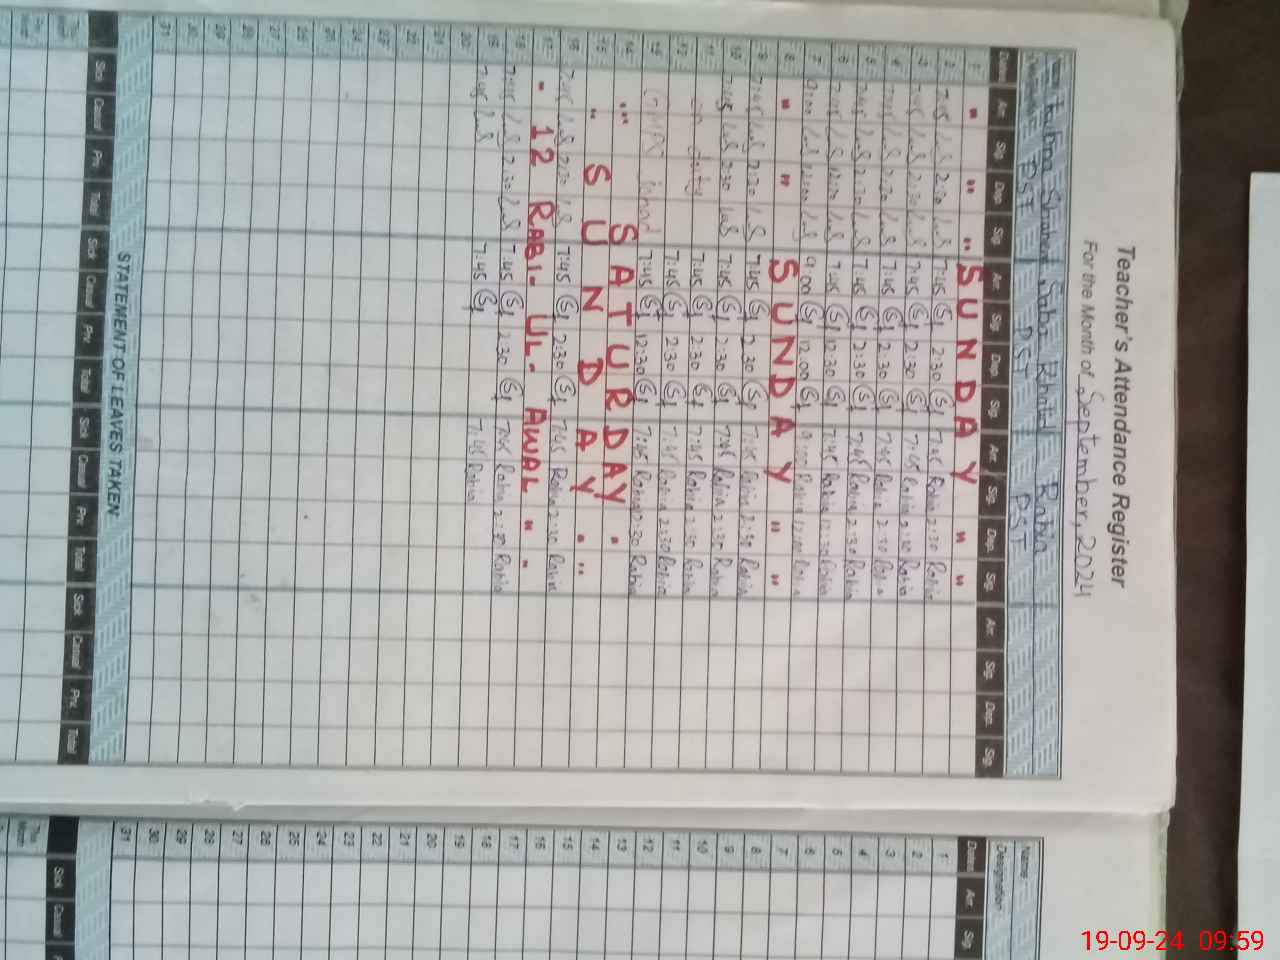 Teacher's Attendance Register
For the Month of September, 2024
Shaheen Saba Khalid Rabia
Designation PST PST PST
Dates Arr. Sig. Dep. Sig. Arr. Sig. Dep. Sig. Arr. Sig. Dep. Sig. Arr. Sig. Dep. Sig.
1 " " " SUNDAY " "
2 7:45 2:30 7:45 2:30 7:45 Rabia 2:30 Rabia
3 7:45 2:30 7:45 2:30 7:45 Rabia 2:30 Rabia
4 7:45 2:30 7:45 2:30 7:45 Rabia 2:30 Rabia
5 7:45 2:30 7:45 2:30 7:45 Rabia 2:30 Rabia
6 7:45 12:30 7:45 12:30 7:45 Rabia 12:30 Rabia
7 9:00 12:00 9:00 12:00 9:00 Rabia 12:00 Rabia
8 " " SUNDAY " "
9 7:45 2:30 7:45 2:30 7:45 Rabia 2:30 Rabia
10 7:45 2:30 7:45 2:30 7:45 Rabia 2:30 Rabia
11 on duty 7:45 2:30 7:45 Rabia 2:30 Rabia
12 7:45 2:30 7:45 Rabia 2:30 Rabia
13 7:45 12:30 7:45 Rabia 2:30 Rabia
14 " " SATURDAY "
15 " SUNDAY " "
16 7:45 2:30 7:45 2:30 7:45 Rabia 2:30 Rabia
17 " 12 RABI-UL-AWAL " "
18 7:45 2:30 7:45 2:30 7:45 Rabia 2:30 Rabia
19 7:45 7:45 7:45 Rabia
20
21
22
23
24
25
26
27
28
29
30
31
STATEMENT OF LEAVES TAKEN
Sick Casual Prv. Total Sick Casual Prv. Total Sick Casual Prv. Total Sick Casual Prv. Total
Name
Designation
Dates Arr. Sig.
1
2
3
4
5
6
7
8
9
10
11
12
13
14
15
16
17
18
19
20
21
22
23
24
25
26
27
28
29
30
31
Sick Casual
This Month
19-09-24 09:59